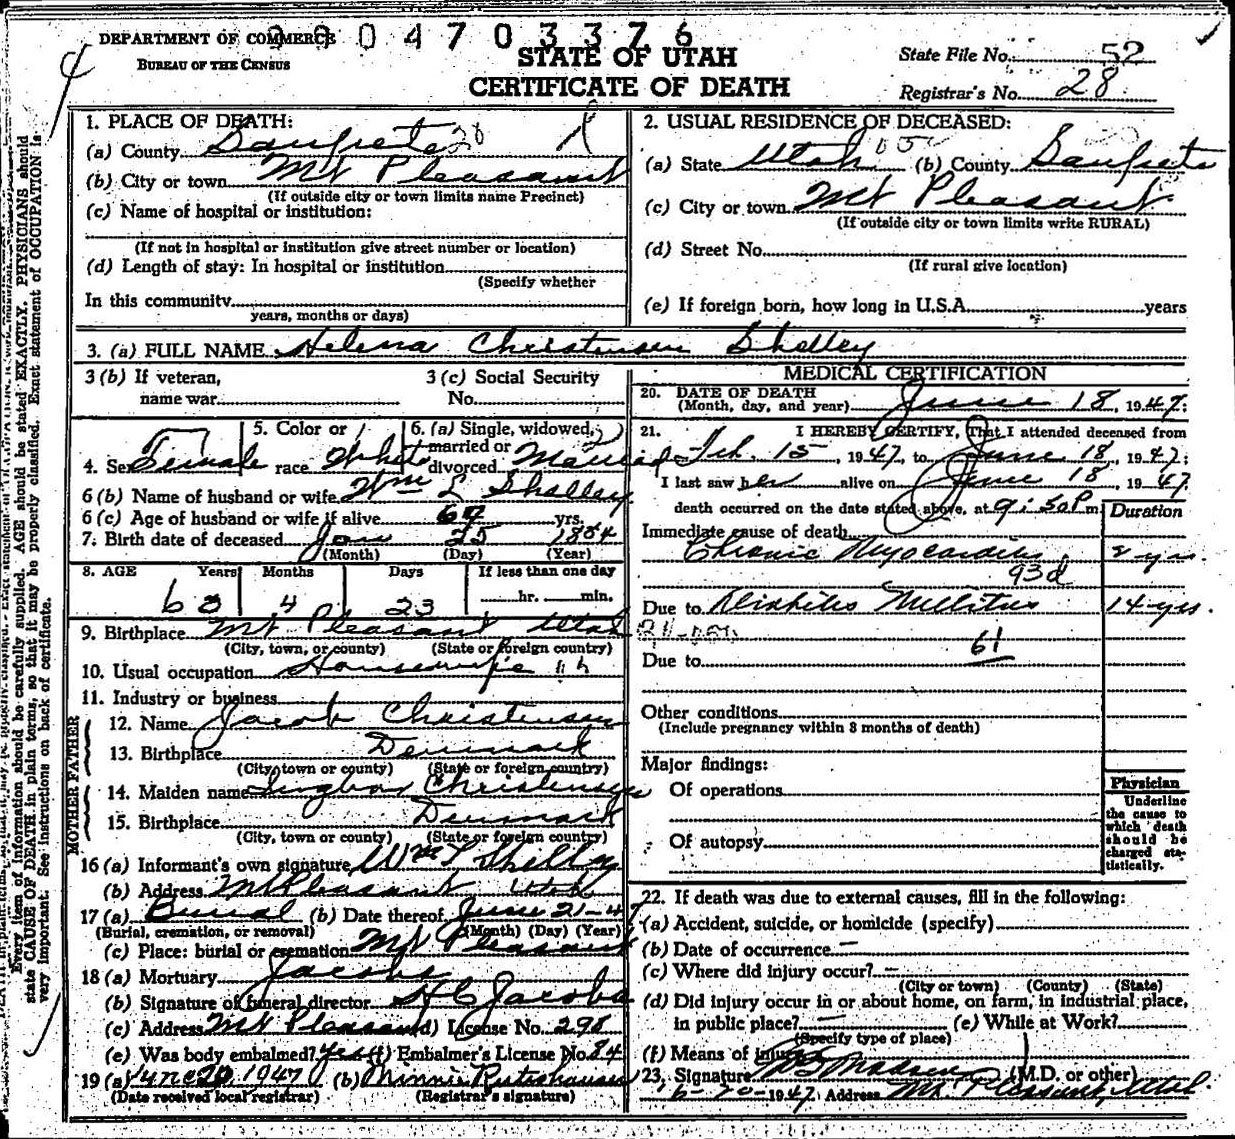 DEPARTMENT OF COMMERCE
BUREAU OF THE CENSUS
4703376
STATE OF UTAH
CERTIFICATE OF DEATH
State File No. 52
Registrar's No. 28
Every item of information should be carefully supplied. AGE should be stated EXACTLY. PHYSICIANS should
state CAUSE OF DEATH in plain terms, so that it may be properly classified. Exact statement of OCCUPATION is
very important. See instructions on back of certificate.
1. PLACE OF DEATH:
(a) County Sanpete 20
(b) City or town Mt Pleasant
(If outside city or town limits name Precinct)
(c) Name of hospital or institution:
(If not in hospital or institution give street number or location)
(d) Length of stay: In hospital or institution
(Specify whether
In this community
years, months or days)
2. USUAL RESIDENCE OF DECEASED:
(a) State Utah (b) County Sanpete
(c) City or town Mt Pleasant
(If outside city or town limits write RURAL)
(d) Street No.
(If rural give location)
(e) If foreign born, how long in U.S.A. years
3. (a) FULL NAME Helena Christensen Shelley
3 (b) If veteran,
name war
3 (c) Social Security
No.
4. Sex Female
5. Color or
race White
6. (a) Single, widowed,
married or
divorced Married
6 (b) Name of husband or wife Wm L Shelley
6 (c) Age of husband or wife if alive yrs.
7. Birth date of deceased Jan 25 1884
(Month) (Day) (Year)
8. AGE Years Months Days If less than one day
63 4 23 hr. min.
9. Birthplace Mt Pleasant Utah
(City, town, or county) (State or foreign country)
10. Usual occupation Housewife
11. Industry or business
FATHER
12. Name Jacob Christensen
13. Birthplace Denmark
(City, town or county) (State or foreign country)
MOTHER
14. Maiden name Christensen
15. Birthplace Denmark
(City, town or county) (State or foreign country)
16 (a) Informant's own signature Wm L Shelley
(b) Address Mt Pleasant Utah
17 (a) Burial (b) Date thereof June 21-47
(Burial, cremation, or removal) (Month) (Day) (Year)
(c) Place: burial or cremation Mt Pleasant
18 (a) Mortuary Jacobs
(b) Signature of funeral director H C Jacobs
(c) Address Mt Pleasant (d) License No. 298
(e) Was body embalmed? Yes (f) Embalmer's License No. 84
19 (a) June 20, 1947 (b) Minnie
(Date received local registrar) (Registrar's signature)
MEDICAL CERTIFICATION
20. DATE OF DEATH
(Month, day, and year) June 18, 1947;
21. I HEREBY CERTIFY, That I attended deceased from
Feb. 15, 1947, to June 18, 1947;
I last saw her alive on June 18, 1947
death occurred on the date stated above, at 9:30 P m.
Duration
Immediate cause of death
Chronic Myocarditis 2 yrs.
93d
Due to Diabetes Mellitus 14 yrs.
61
Due to
Other conditions
(Include pregnancy within 3 months of death)
Major findings:
Of operations
Of autopsy
Physician
Underline
the cause to
which death
should be
charged sta-
tistically.
22. If death was due to external causes, fill in the following:
(a) Accident, suicide, or homicide (specify)
(b) Date of occurrence —
(c) Where did injury occur? —
(City or town) (County) (State)
(d) Did injury occur in or about home, on farm, in industrial place,
in public place? — (e) While at Work?
(Specify type of place)
(f) Means of injury
23. Signature Madsen (M.D. or other)
6-20-1947 Address Mt. Pleasant, Utah.